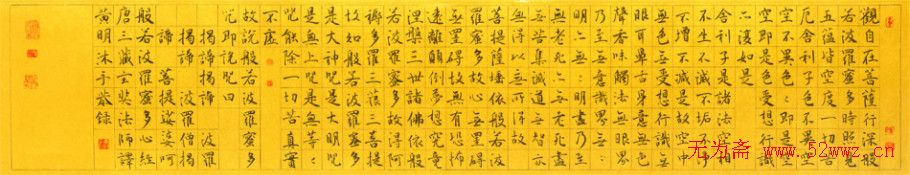 觀自在菩薩行深般
若波羅蜜多時照見
五蘊皆空度一切苦
厄舍利子色不異空
空不異色々即是空
空即是色受想行識
亦復如是
舍利子是諸法空相
不生不滅不垢不淨
不增不減是故空中
無色無受想行識無
眼耳鼻舌身意無色
聲香味觸法無眼界
乃至無意識界無々
明亦無々明盡乃至
無老死亦無老死盡
無苦集滅道無智亦
無得以無所得故
菩提薩埵依般若波
羅蜜多故心無罣礙
無罣礙故無有恐怖
遠離顛倒夢想究竟
涅槃三世諸佛依般
若波羅蜜多故得阿
耨多羅三藐三菩提
故知般若波羅蜜多
是大神咒是大明咒
是無上咒是無等々
咒能除一切苦真實
不虛
故說般若波羅蜜多
咒即說咒曰
揭諦揭諦 波羅
揭諦 波羅僧揭
諦 菩提薩婆訶
般若波羅蜜多心經
唐三藏玄奘法師譯
黃明沐手敬錄
无为斋 www.52wwz.cn